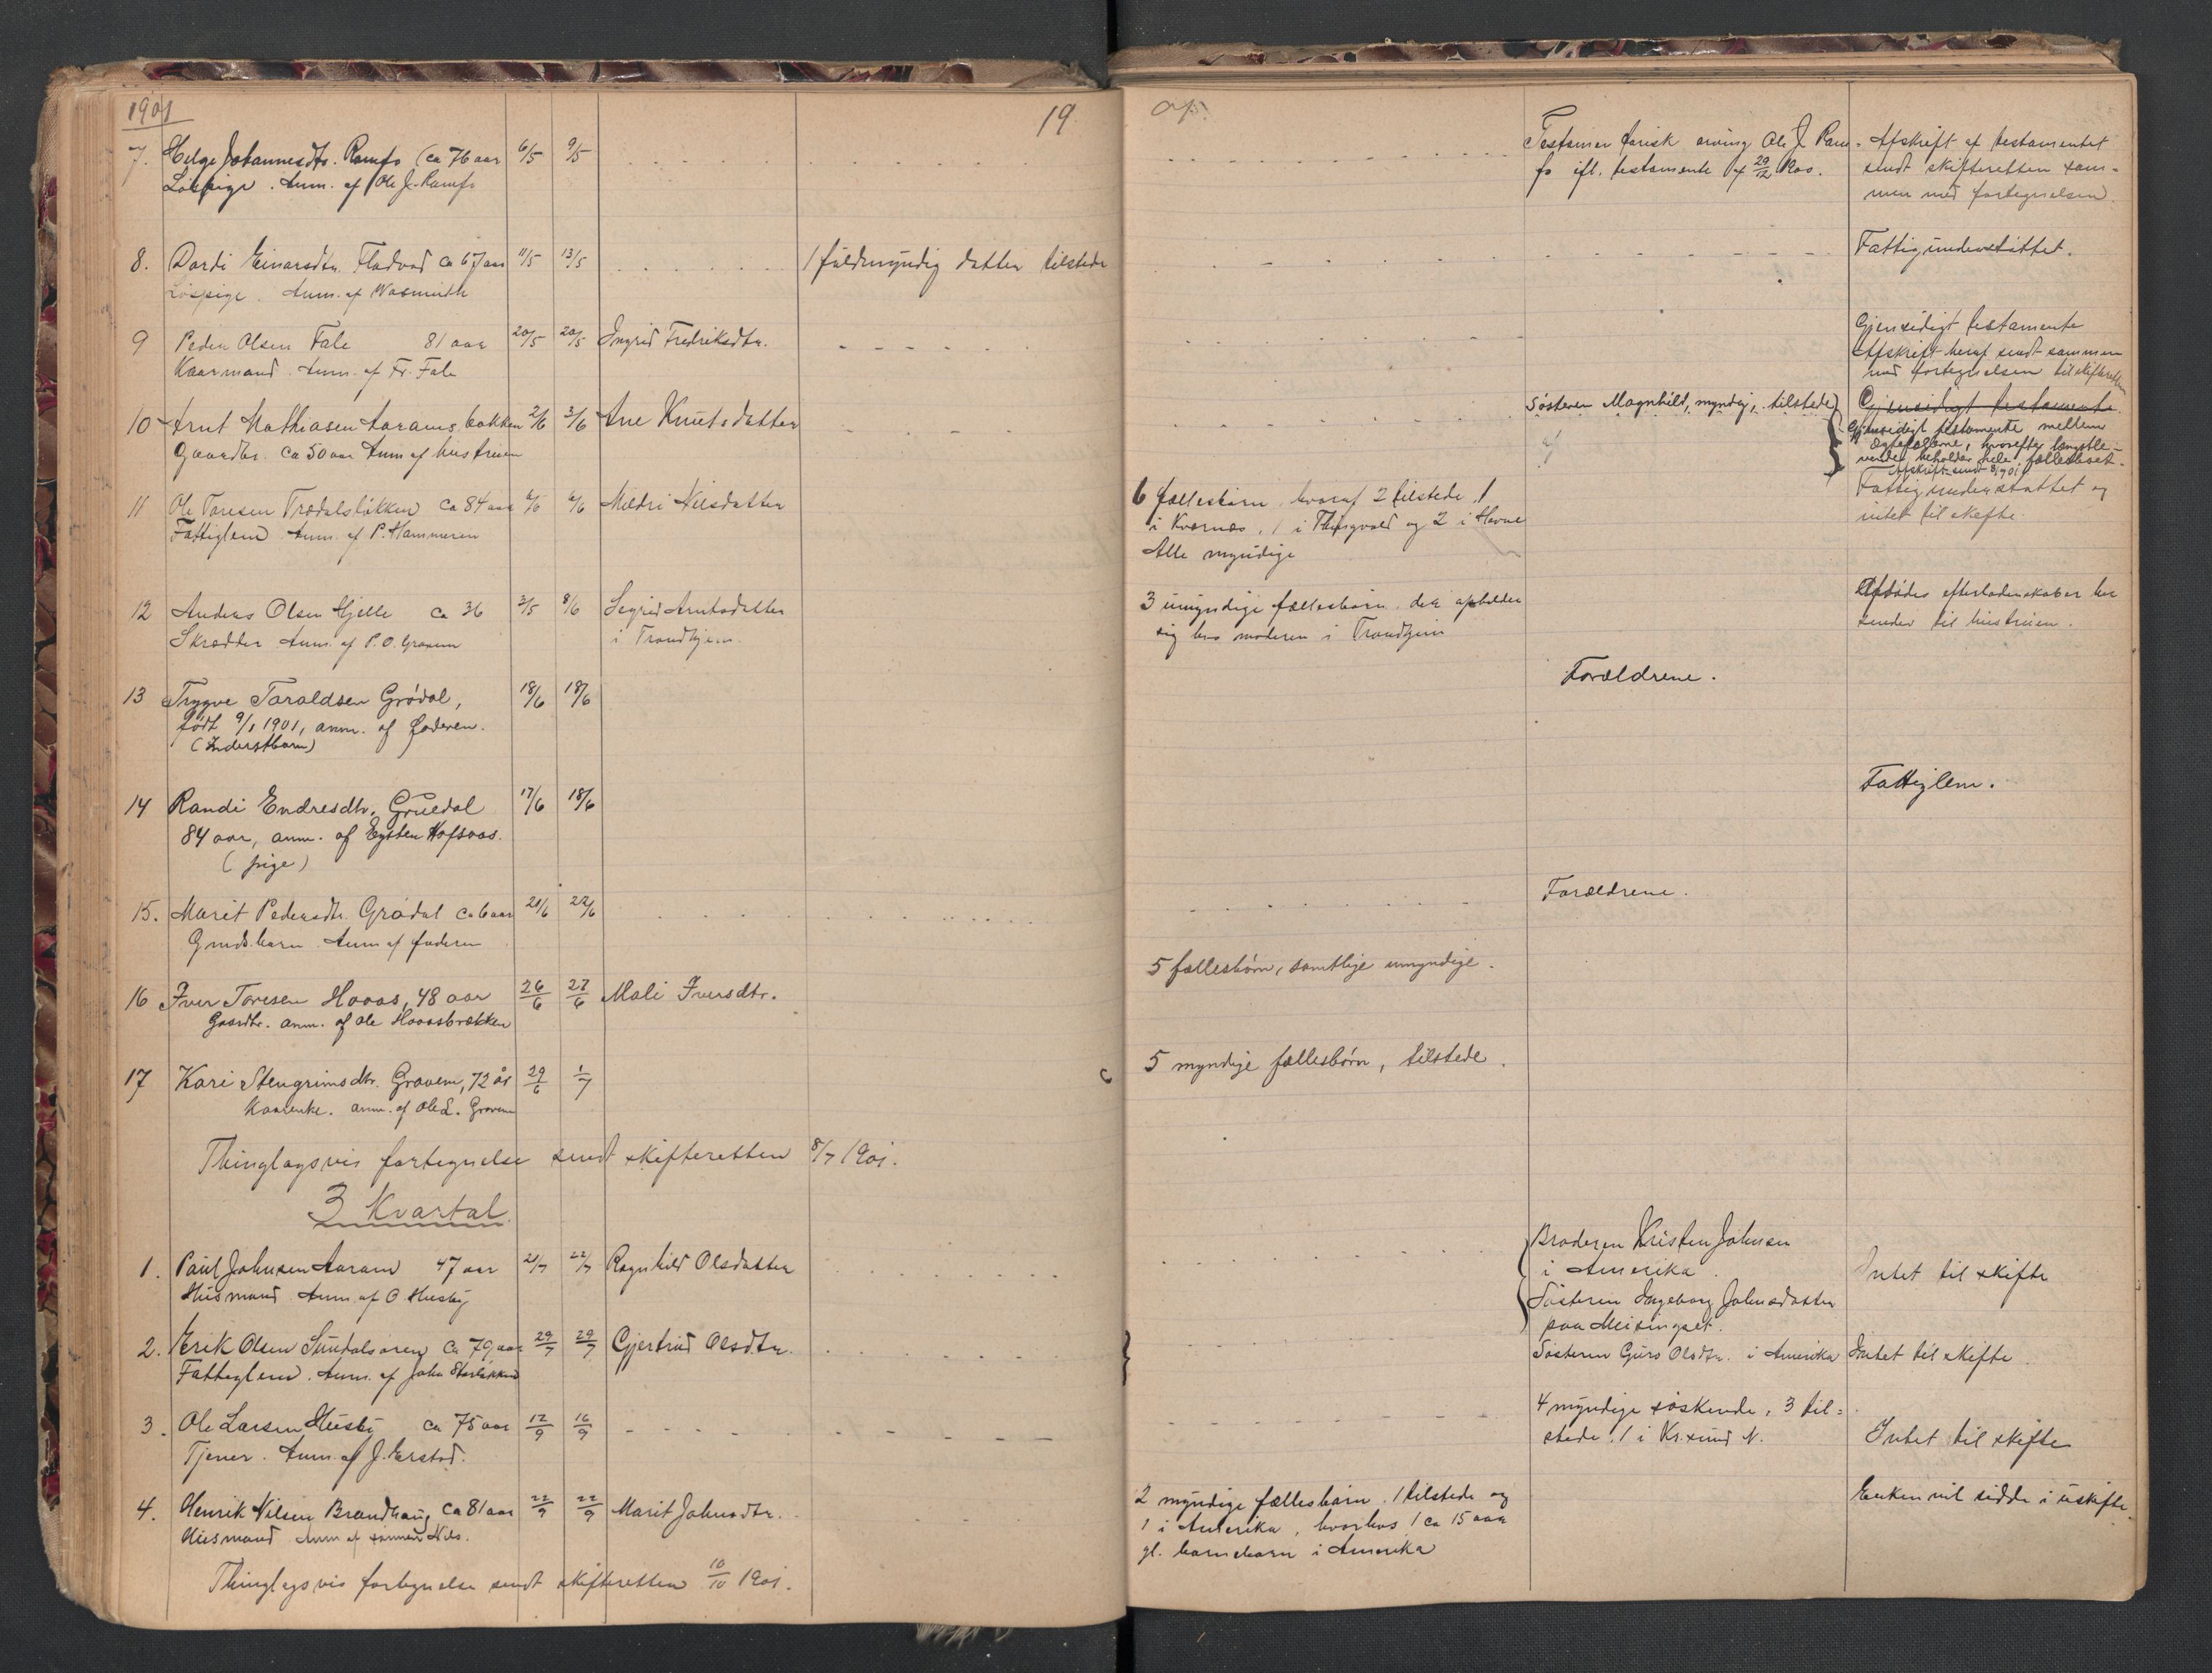 1901
19
7. Helge Johannesdtr. Ramfo (ca 76 aar 6/5 9/5
Løspige. Anm. af Ole J. Ramfo
Testamentarisk arving Ole J. Ram-
fo ifl. testamente af 29/12 1900.
Afskrift af testamentet
sendt skifteretten sam-
men med fortegnelsen.
8. Dordi Einarsdtr. Fladvad ca 67 aar 11/5 13/5 1 fuldmyndig datter tilstede
Løspige. Anm. af Wasmuth
Fattigunderstøttet.
9 Peder Olsen Fale 81 aar 20/5 20/5 Ingrid Fredriksdtr.
Kaarmand. Anm. af Fr. Fale
Gjensidigt testamente
Afskrift heraf sendt sammen
med fortegnelsen til skifteretten
10 Arnt Mathiasen Aarams bakken 2/6 3/6 Ane Knutsdatter
Gaardbr. ca 50 aar Anm af hustruen
Søsteren Magnhild, myndig, tilstede
Gjensidigt testamente
Gjensidigt testamente mellem
ægtefællerne, hvorefter længstle-
vende beholder hele fællesboet.
Afskrift sendt 8/7 1901
11 Ole Toresen Trædalsløkken ca 84 aar 4/6 6/6 Mildri Nilsdatter
Fattiglem Anm. af P. Hammeren
6 fællesbørn, hvoraf 2 tilstede, 1
i Kvernæs, 1 i Thingvold og 2 i Havne
Alle myndige
Fattigunderstøttet og
intet til skifte
12 Anders Olsen Hjelle ca 36 3/5 8/6 Sigrid Arntsdatter
Skrædder Anm. af P. O. Gravem i Trondhjem.
3 umyndige fællesbørn der opholder
sig hos moderen i Trondhjem
Afdødes efterladenskaber her
sendes til hustruen.
13 Trygve Taraldsen Grødal, 18/6 18/6
født 9/1 1901, anm. af faderen.
(Inderstbarn)
Forældrene.
14 Randi Endresdtr. Gruedal 17/6 18/6
84 aar, anm. af Eysten Hofsaas.
(pige)
Fattiglem.
15. Marit Pedersdtr. Grødal ca 6 aar 21/6 22/6
Gmds. barn Anm af faderen
Forældrene.
16 Iver Toresen Hoaas, 48 aar 26/6 27/6 Mali Iversdtr.
Gaardbr. anm. af Ole Hoaasbrækken
5 fællesbørn, samtlige umyndige.
17 Kari Stengrimsdtr. Gravem, 72 år 29/6 1/7
Kaarenke. anm. af Ole L. Gravem
5 myndige fællesbørn, tilstede.
Thinglagsvis fortegnelse sendt skifteretten 8/7 1901.
3 Kvartal
1. Paul Johnsen Aaram 47 aar 21/7 22/7 Ragnhild Olsdatter
Husmand. Anm. af O. Husby
Broderen Kristen Johnsen
i Amerika.
Søsteren Ingeborg Johnsdatter
paa Meisingset.
Intet til skifte
2. Erik Olsen Sundalsøren ca 79 aar 29/7 29/7 Gjertrud Olsdtr.
Fattiglem. Anm. af John Storløkken
Søsteren Guro Olsdtr. i Amerika Intet til skifte
3. Ole Larsen Husby ca 75 aar 12/9 16/9
Tjener. Anm. af J. Erstad.
4 myndige søskende, 3 til-
stede. 1 i Kr.sund N.
Intet til skifte
4. Henrik Nilsen Brandhaug ca 81 aar 22/9 22/9 Marit Johnsdtr.
Husmand Anm af sønnen Nils.
2 myndige fællesbørn. 1 tilstede og
1 i Amerika, hvorhos 1 ca 15 aar
gl. barnebarn i Amerika
Enken vil sidde i uskifte
Thinglagsvis fortegnelse sendt skifteretten 10/10 1901.